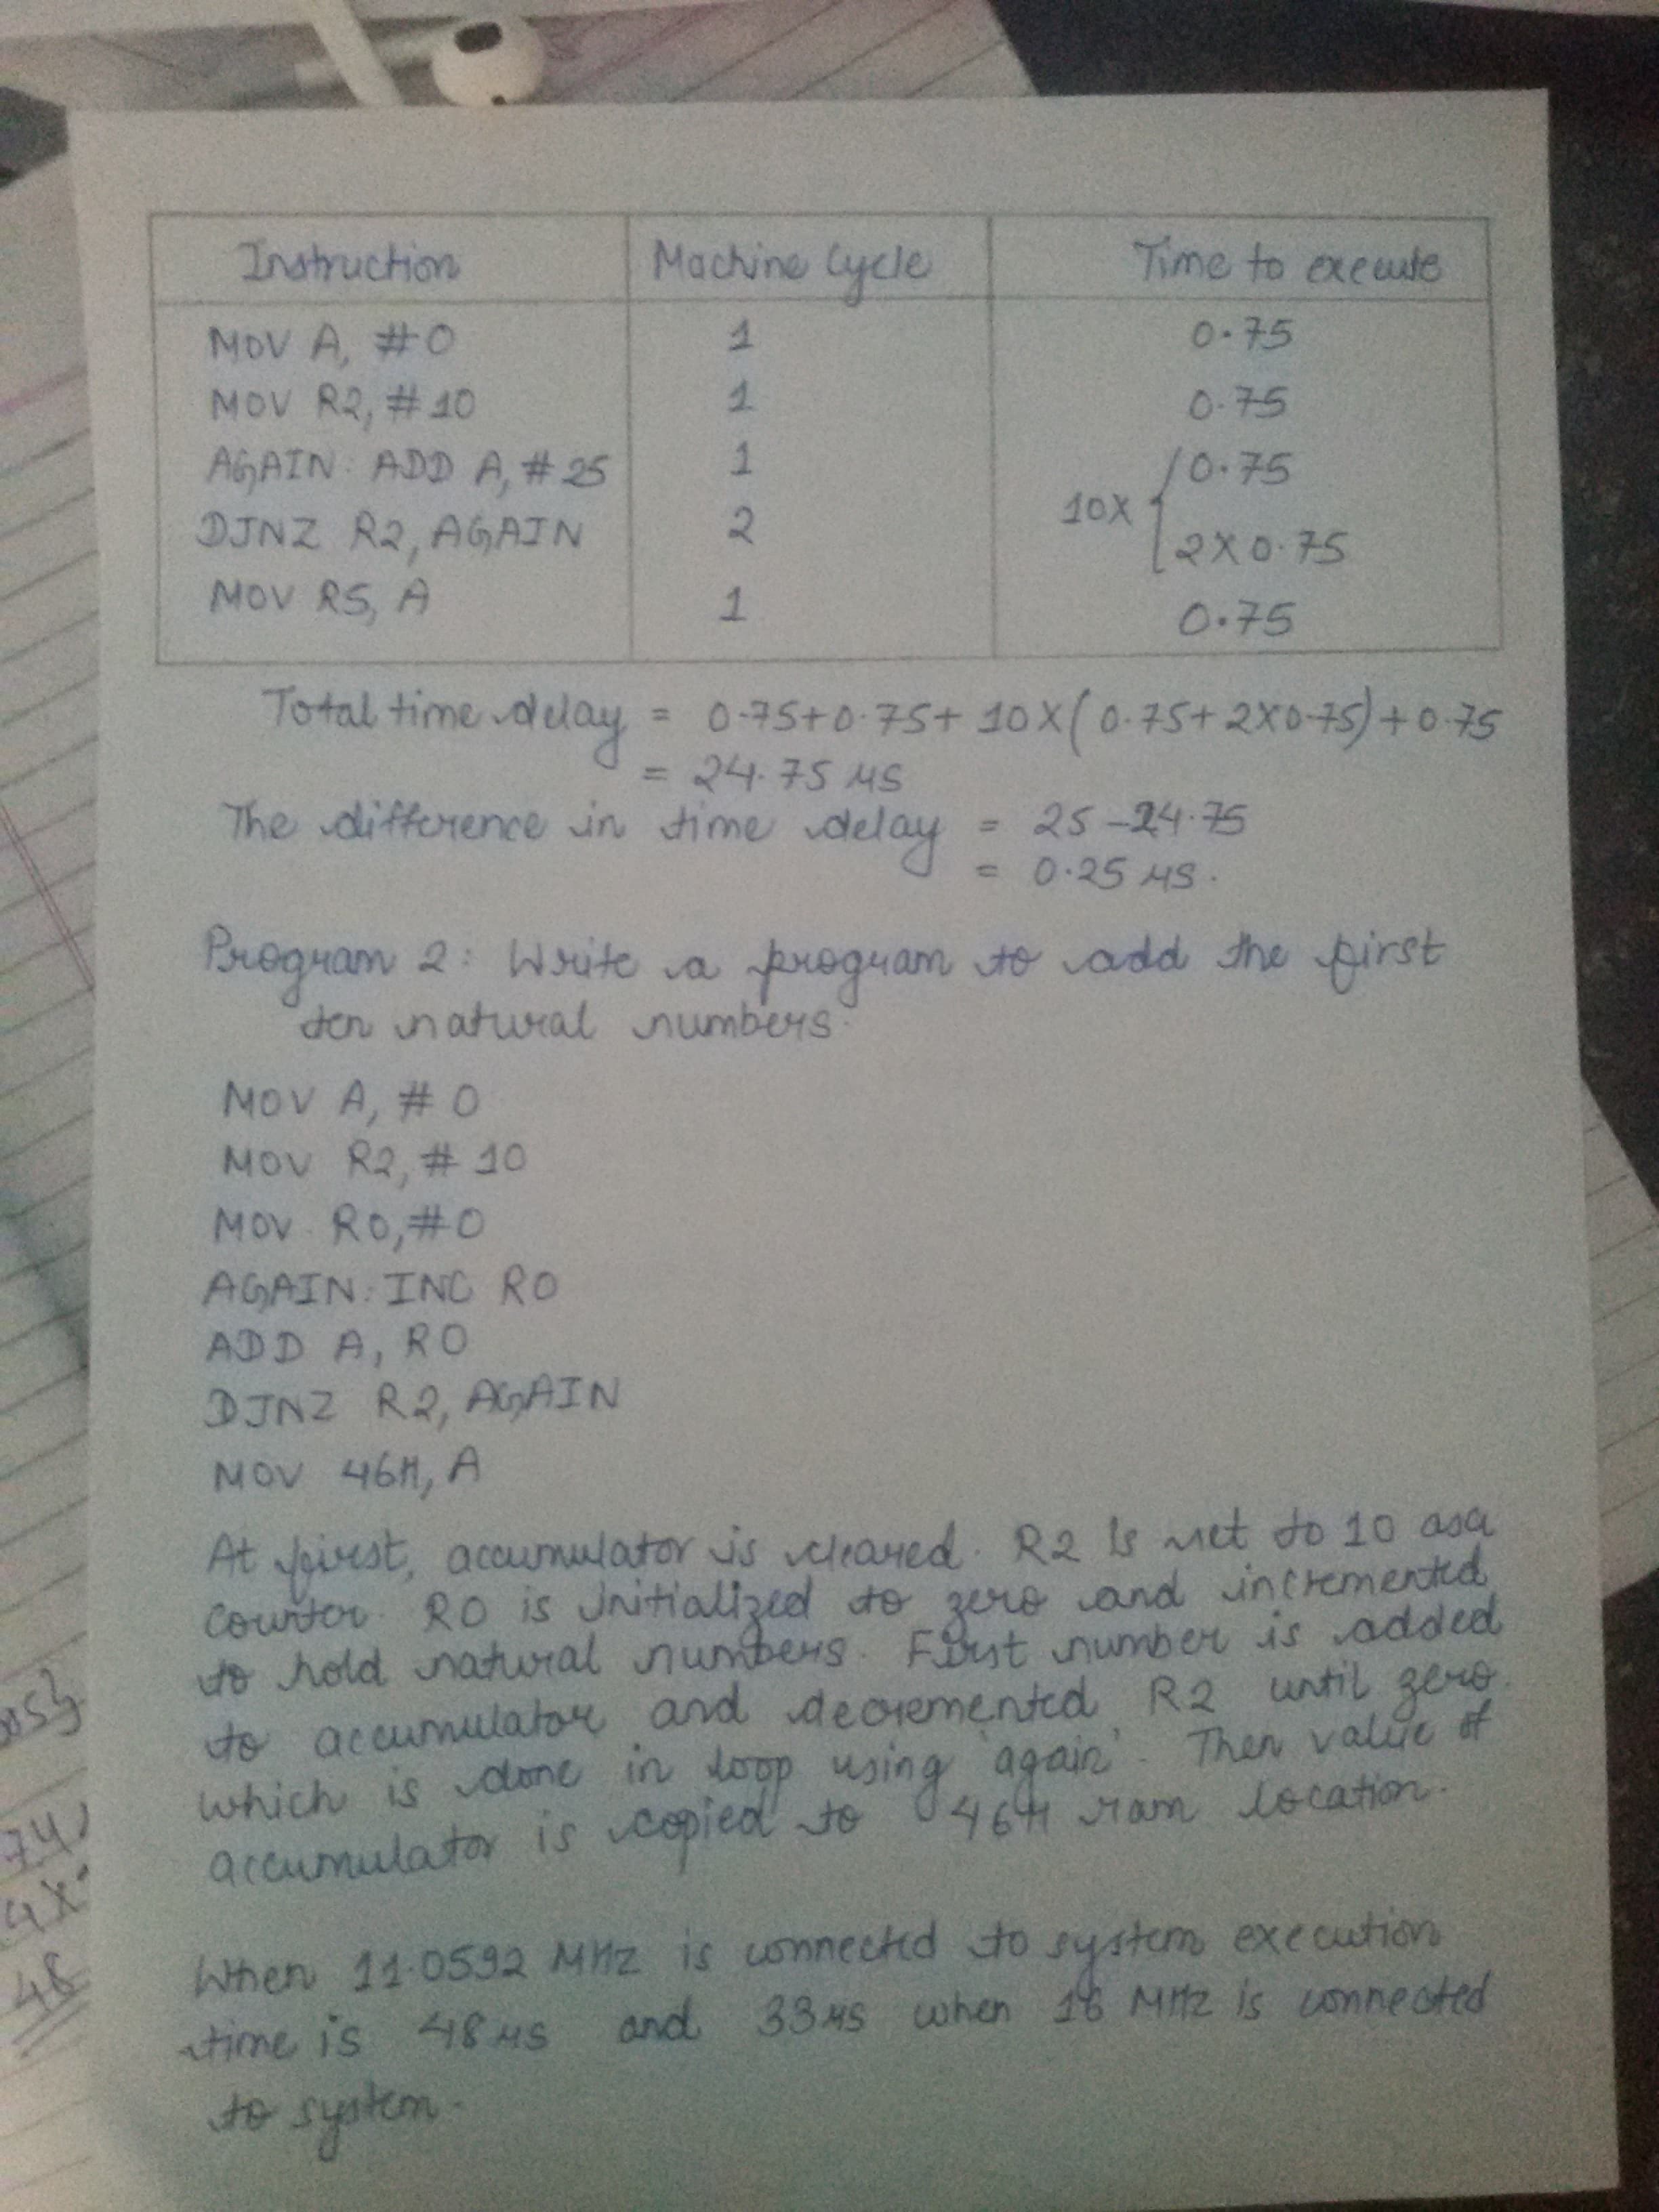 Instruction Machine Cycle Time to execute
MOV A, #0 1 0.75
MOV R2, #10 1 0.75
AGAIN: ADD A, #25 1 0.75
DJNZ R2, AGAIN 2 10X 2X0.75
MOV R5, A 1 0.75
Total time delay = 0.75+0.75+ 10X(0.75+2X0.75)+0.75
= 24.75 μs
The difference in time delay = 25-24.75
= 0.25 μs.
Program 2: Write a program to add the first
ten natural numbers.
MOV A, #0
MOV R2, #10
MOV R0, #0
AGAIN: INC R0
ADD A, R0
DJNZ R2, AGAIN
MOV 46H, A
At first, accumulator is cleared. R2 is set to 10 as a
counter. R0 is initialized to zero and incremented
to hold natural numbers. First number is added
to accumulator and decremented R2 until zero.
which is done in loop using 'again'. Then value of
accumulator is copied to 46H ram location.
When 11.0592 MHz is connected to system execution
time is 48 μs and 33 μs when 16 MHz is connected
to system.
74
4X
48